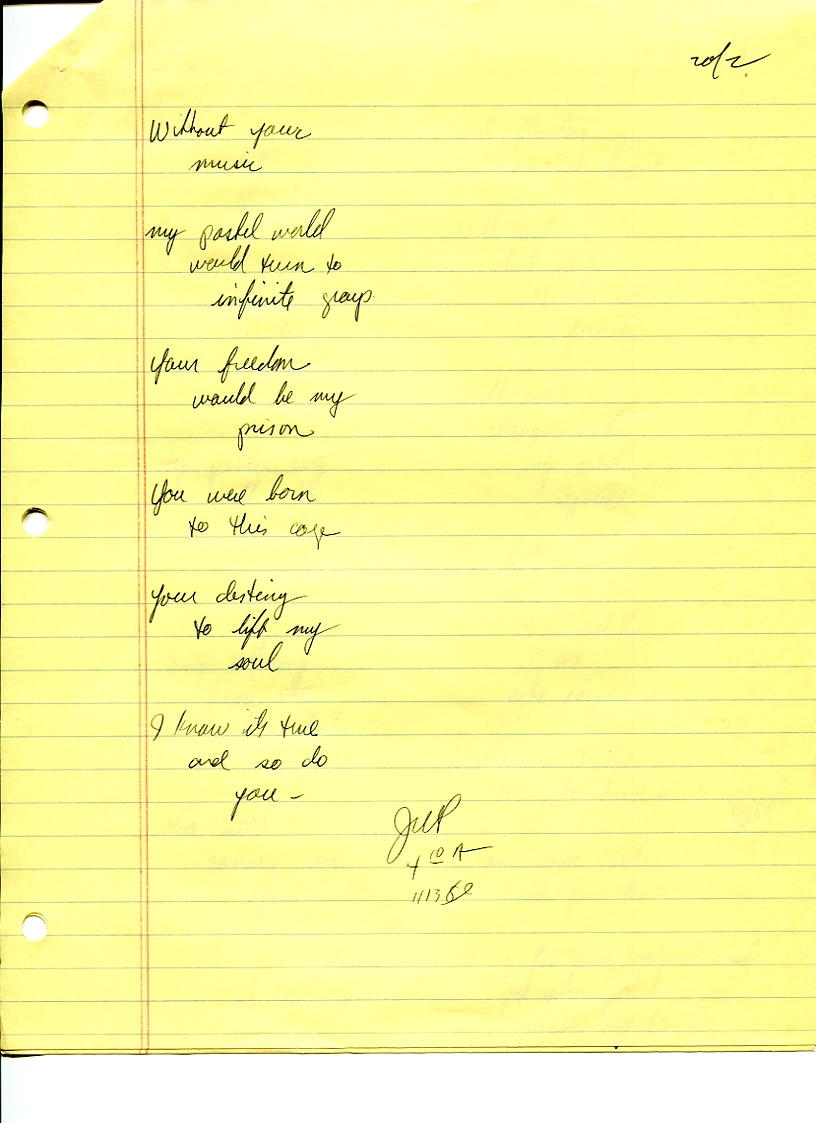 2 of 2
Without your
music
my pastel world
would turn to
infinite grays
your freedom
would be my
prison
You were born
to this cage
your destiny
to lift my
soul
I know it's true
and so do
you -
4 10 A